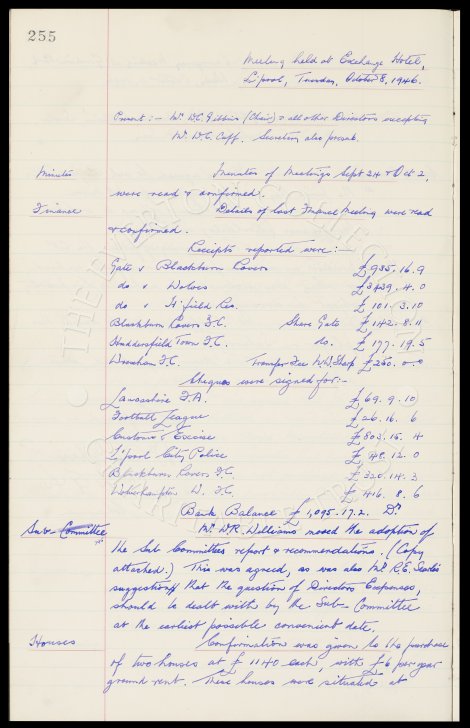 255
Meeting held at Exchange Hotel,
L'pool, Tuesday, October 8, 1946.
Present :- Mr W.C. Gibbins (Chair) & all other Directors excepting
Mr. W.C. Cuff. Secretary also present.
Minutes Minutes of Meetings Sept 24 & Oct 2,
were read & confirmed.
Finance Details of last Finance Meeting were read
& confirmed.
Receipts reported were :-
Gate v Blackburn Rovers £935. 16. 9
do v Wolves £3439. 4. 0
do v H'field Res. £101. 3. 10
Blackburn Rovers F.C. Share Gate £142. 8. 11
Huddersfield Town F.C. do. £177. 19. 5
Wrexham F.C. Transfer Fee W.W. Sharp £250. 0. 0
Cheques were signed for :-
Lancashire F.A. £69. 9. 10
Football League £26. 16. 6
Customs & Excise £803. 15. 4
L'pool City Police £48. 12. 0
Blackburn Rovers F.C. £320. 14. 3
Wolverhampton W. F.C. £416. 8. 6
Bank Balance £1,095. 17. 2. Dr
Sub-Committee Mr. W.R. Williams moved the adoption of
the Sub Committees report & recommendations. (Copy
attached.) This was agreed, as was also Mr. R.E. Searle's
suggestion that the question of Directors Expenses,
should be dealt with by the Sub-Committee
at the earliest possible convenient date.
Houses Confirmation was given to the purchase
of two houses at £1140 each, with £6 per year
ground rent. These houses were situated at
THE EVERTON COLLECTION